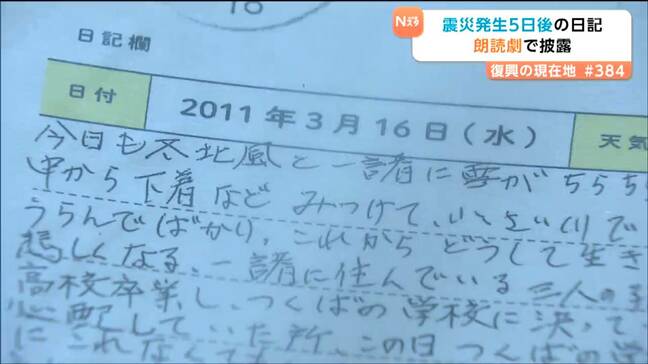 16
Nスタ
震災発生5日後の日記
朗読劇で披露
復興の現在地 #384
日記欄
日付
2011年3月16日(水)
天気
今日も冬北風と一諸に雪がちらち
中から下着など みつけて、
うらんでばかり、これから どうして生き
しくなる、一諸に住んでいる 三人の
高校卒業し、つくばの学校に決って
心配していた所、この日 つくばの
にこれなくて